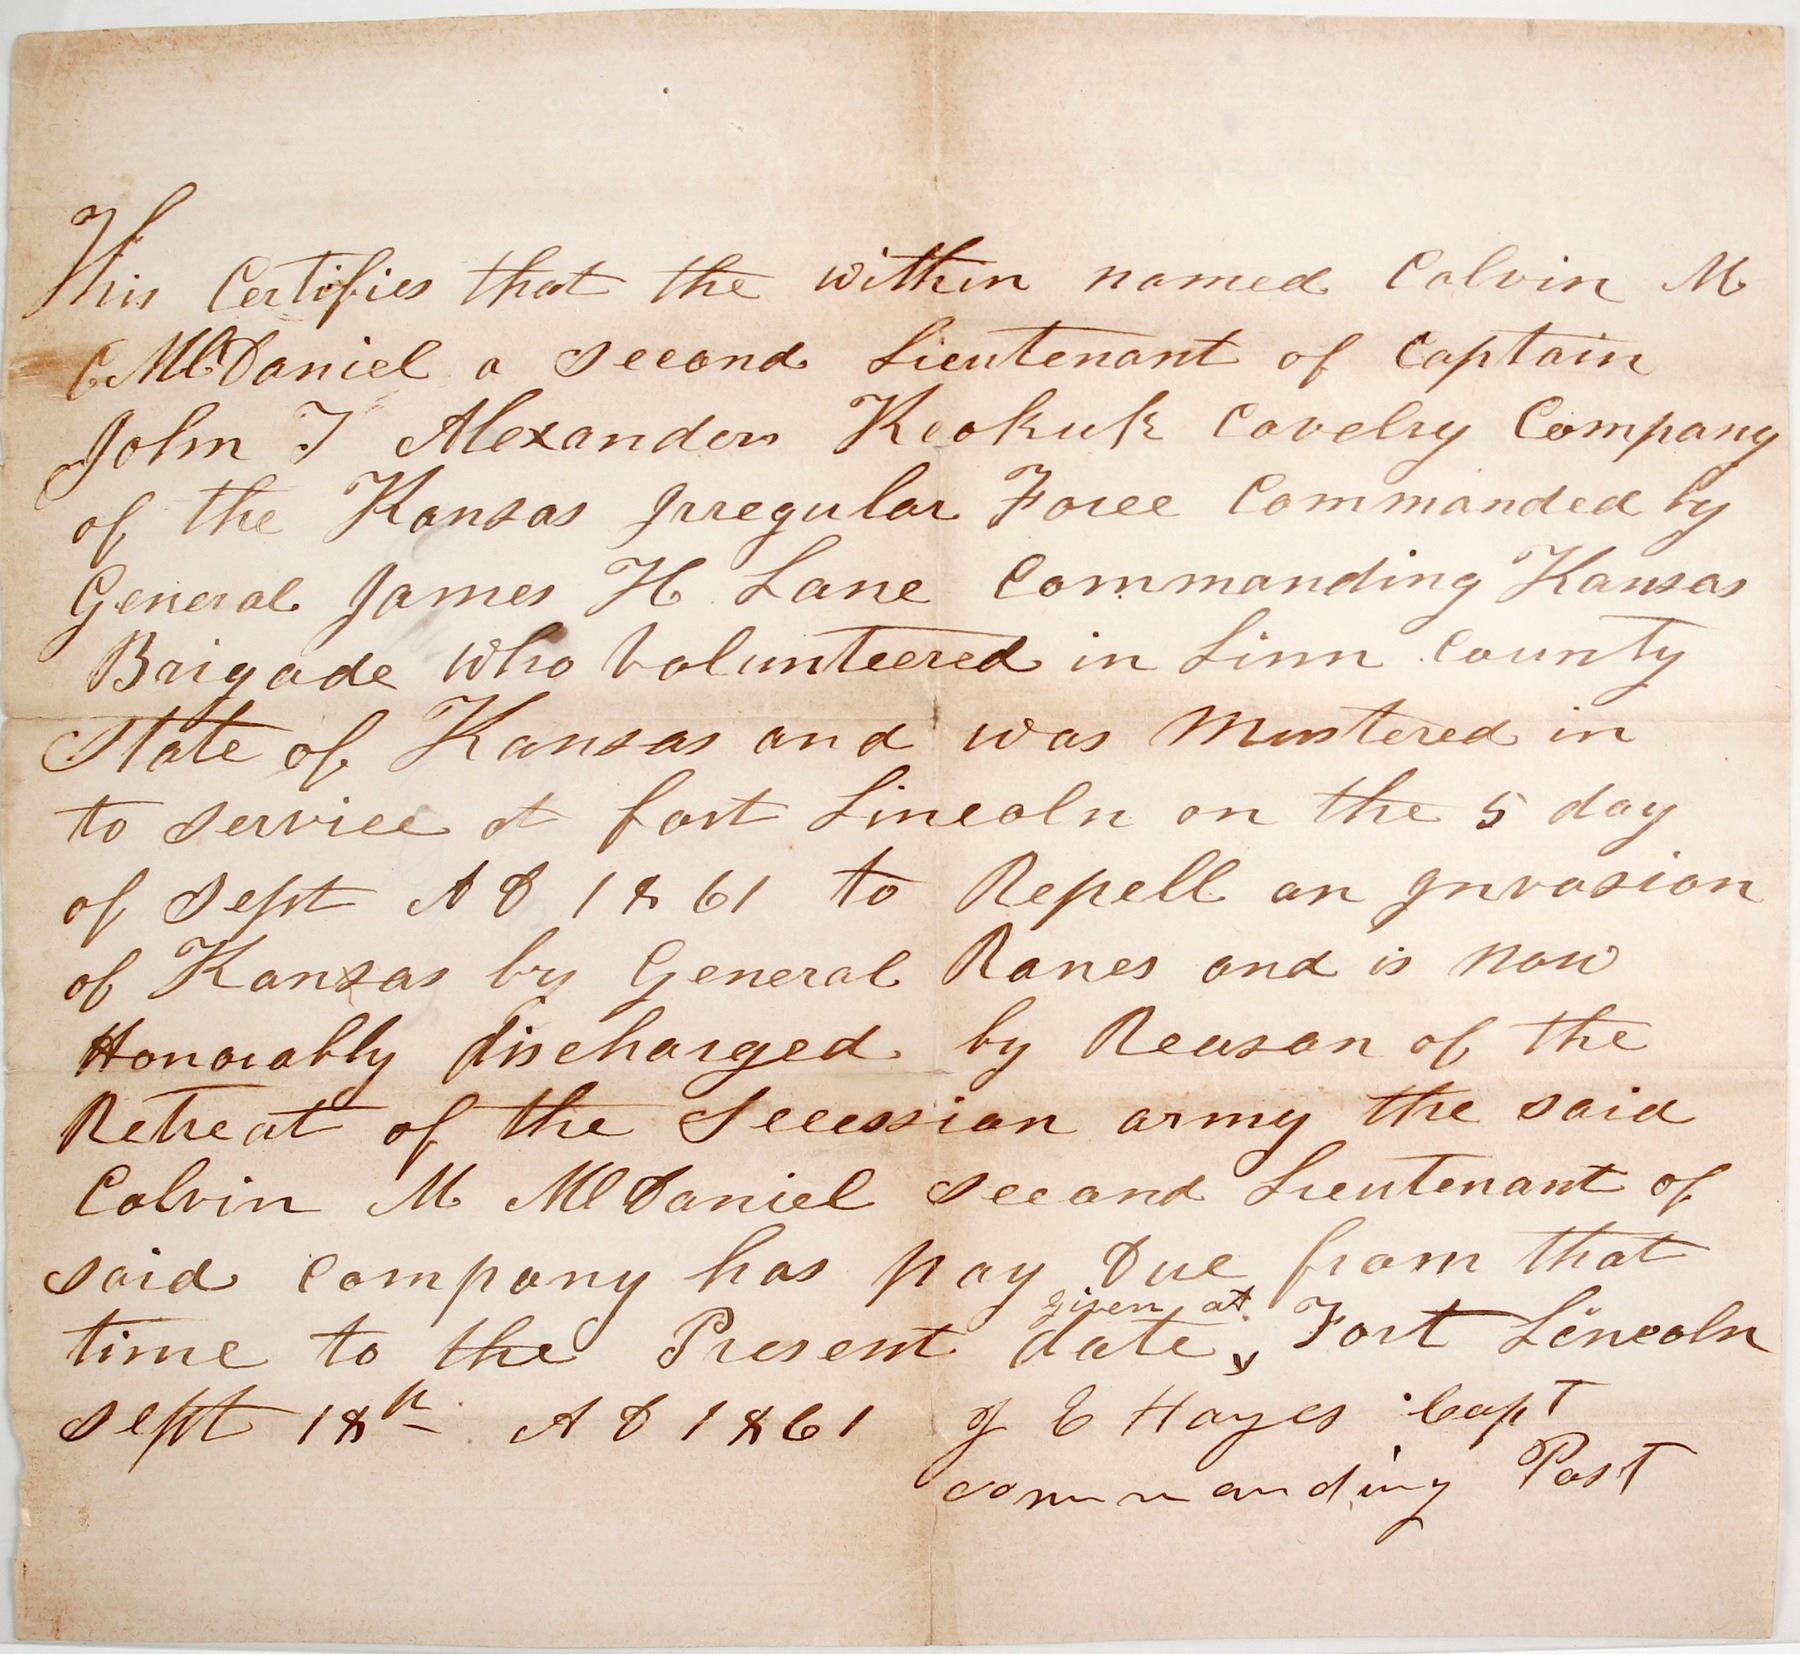 This Certifies that the within named Calvin M
C McDaniel a second Lieutenant of Captain
John T Alexanders Keokuk Cavelry Company
of the Kansas Irregular Force Commanded by
General James H Lane Commanding Kansas
Brigade who Volunteered in Linn County
State of Kansas and was Mustered in
to service at fort Lincoln on the 5 day
of Sept A D 1861 to Repell an Invasion
of Kansas by General Ranes and is now
Honorably discharged by Reason of the
Retreat of the Secession army the said
Calvin M McDaniel second Lieutenant of
said Company has pay Due from that
time to the Present date, given at Fort Lincoln
Sept 18th A D 1861 J E Hayes Capt
commanding Post